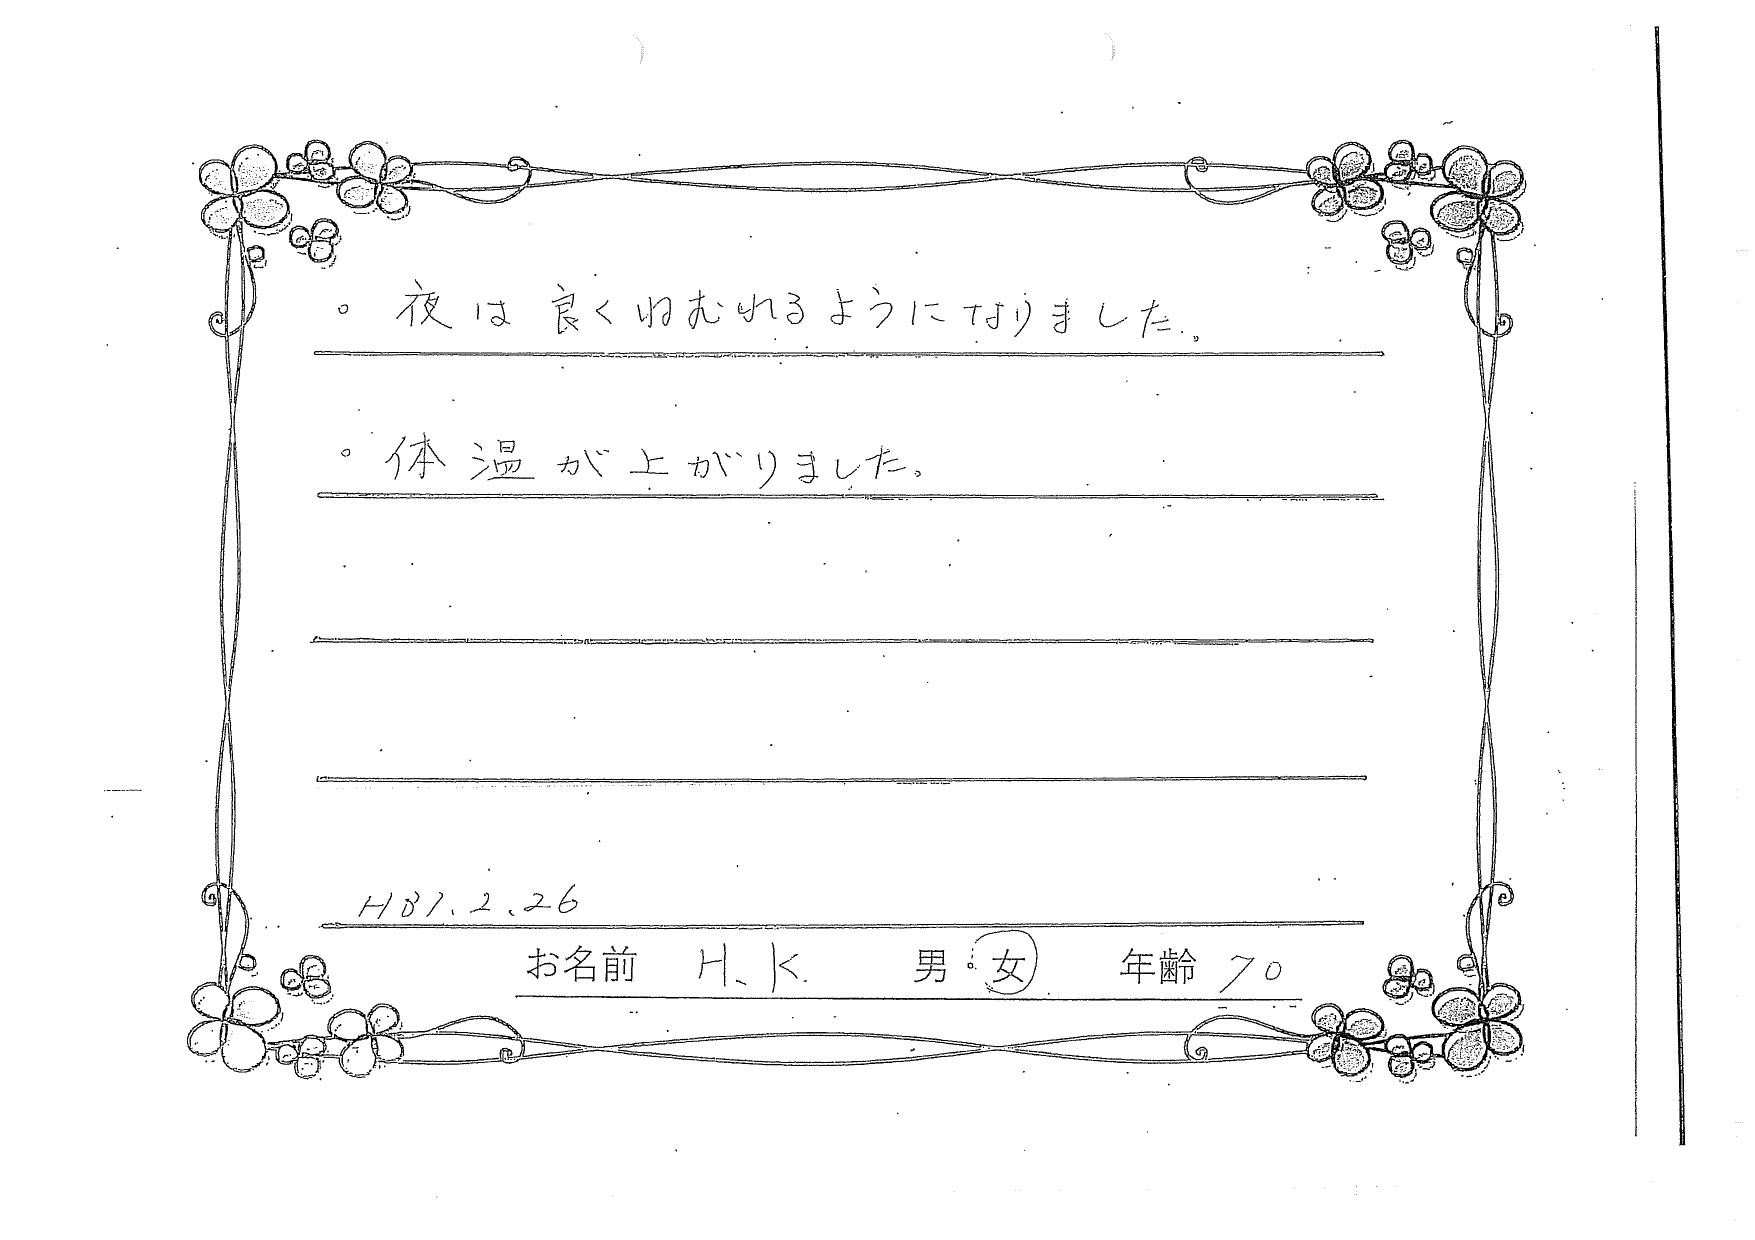 。夜は良くねむれるようになりました。
。体温が上がりました。
H31.2.26
お名前 H.K. 男・女 年齢 70